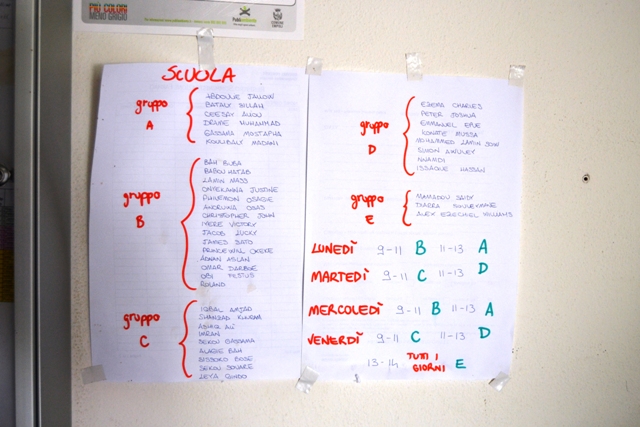 PIÙ COLORI
MENO GRIGIO
SCUOLA
gruppo
A
ABDOULIE JALLOW
BATALY SILLAH
CEESAY ALION
DRAME MUHAMMAD
GASSAMA MOSTAPHA
KOULIBALY MADANI
gruppo
B
BAH BUBA
BABOU HATAB
LAMIN MASS
ONYEKANNA JUSTINE
PHILEMON OSAGIE
ANGELINA OSAS
CHRISTOPHER JOHN
IVERE VICTORY
JACOB LUCKY
JAMES SATO
PRINCE WILL OKEKE
ADNAN ASLAN
OMAR DARBOE
OBI FESTUS
ROLAND
gruppo
C
IQBAL AMJAD
SHAHZAD KHURAM
ASHIR ALI
IMRAN
SEKOU GASSAMA
ALAGIE BAH
SISSOKO BOSE
SEKOU SOUARE
LEYA GUIDO
gruppo
D
EZEMA CHARLES
PETER JOSHUA
EMMANUEL
KONATE MUSSA
MOHAMMED LAMIN SOW
SIMON AWULEY
NNAMDI
ISSAQUE HASSAN
gruppo
E
MAMADOU SAIDY
DIARRA SOULEYMANE
ALEX EZECHIEL WILLIAMS
LUNEDÌ 9-11 B 11-13 A
MARTEDÌ 9-11 C 11-13 D
MERCOLEDÌ 9-11 B 11-13 A
VENERDÌ 9-11 C 11-13 D
13-14 TUTTI I GIORNI E